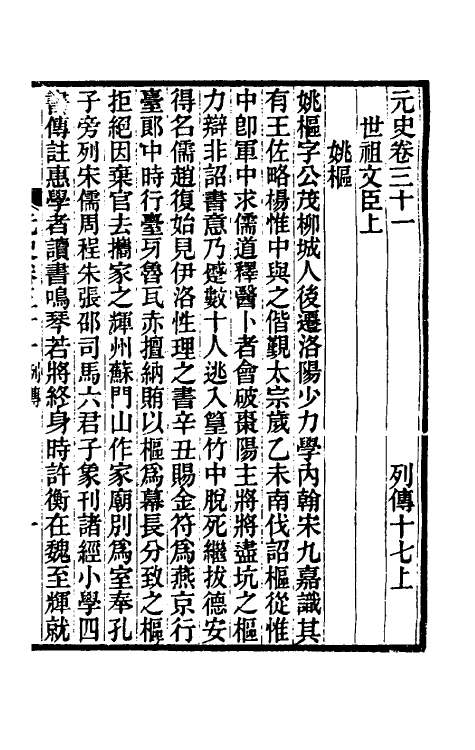 元史卷三十一　列傳十七上
世祖文臣上
姚樞
姚樞字公茂柳城人後遷洛陽少力學內翰宋九嘉識其
有王佐略楊惟中與之偕覲太宗歲乙未南伐詔樞從惟
中卽軍中求儒道釋醫卜者會破棗陽主將將盡坑之樞
力辯非詔書意乃蹙數十人逃入篁竹中脫死繼拔德安
得名儒趙復始見伊洛性理之書辛丑賜金符爲燕京行
臺郎中時行臺牙魯瓦赤擅納賄以樞爲幕長分致之樞
拒絕因棄官去攜家之輝州蘇門山作家廟別爲室奉孔
子旁列宋儒周程朱張邵司馬六君子象刊諸經小學四
書傳註惠學者讀書鳴琴若將終身時許衡在魏至輝就
元史卷三十一　列傳　一